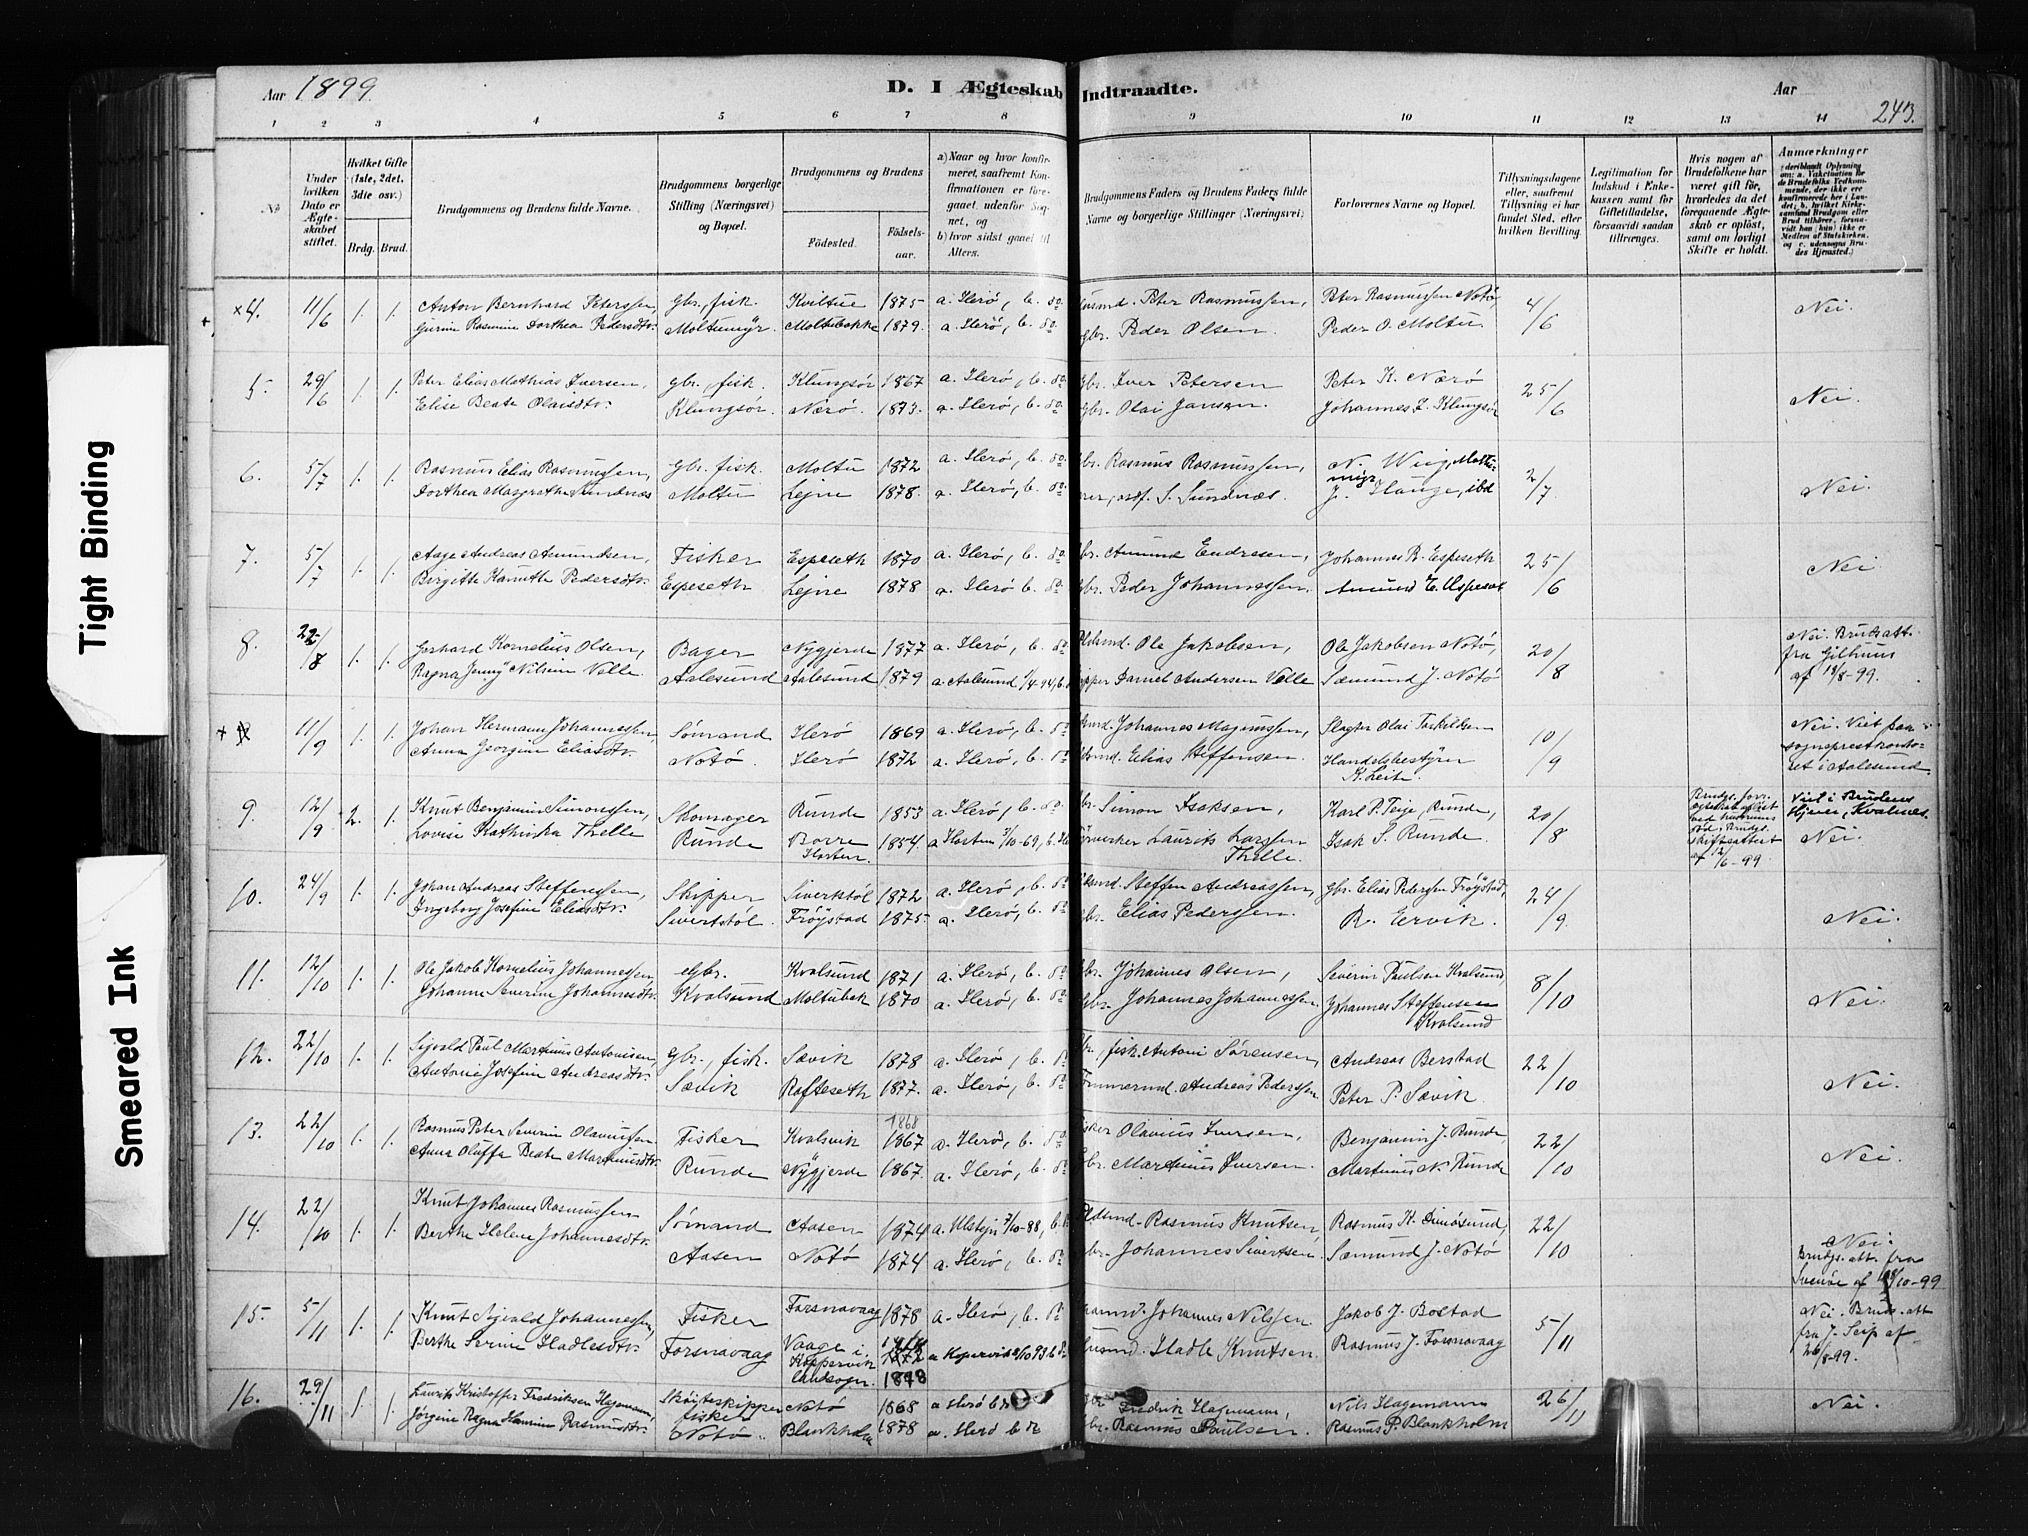 Aar 1899.
D. I Ægteskab Indtraadte.
Aar
243.
1 2 3 4 5 6 7 8 9 10 11 12 13 14
No
Under hvilken Dato er Ægteskabet stiftet.
Hvilket Gifte (1ste, 2det, 3dte osv.)
Brdg. Brud.
Brudgommens og Brudens fulde Navne.
Brudgommens borgerlige Stilling (Næringsvei) og Bopæl.
Brudgommens og Brudens
Födested. Födselsaar.
a) Naar og hvor konfirmeret, saafremt Konfirmationen er foregaaet udenfor Sognet, og
b) hvor sidst gaaet til Alters.
Brudgommens Faders og Brudens Faders fulde Navne og borgerlige Stillinger (Næringsvei)
Forlovernes Navne og Bopæl.
Tillysningsdagene eller, saafremt Tillysning ei har fundet Sted, efter hvilken Bevilling.
Legitimation for Indskud i Enkekassen samt for Giftetilladelse, forsaavidt saadan tiltrænges.
Hvis nogen af Brudefolkene har været gift för, hvorledes da det foregaaende Ægteskab er oplöst, samt om lovligt Skifte er holdt.
Anmærkninger
x4. 11/6 1. 1. Anton Bernhard Peterssen, gbr., fisk. Kviltue 1875 a. Herø, b. do. Husmd. Peter Rasmussen, Peter Rasmussen Notø, 4/6 Nei.
Gurine Rasmine Dorthea Pedersdtr. Moltumyr Moltubakke 1879. a. Herø, b. do gbr. Peder Olsen Peder O. Moltu
5. 29/6 1. 1. Peter Elias Mathias Iversen, gbr., fisk. Klungsør 1867 a. Herø, b. do. gbr. Iver Petersen Peter K. Nærø 25/6 Nei.
Elise Beate Olaisdtr. Klungsør. Nærø. 1873. a. Herø, b. do gbr. Olai Jansen. Johannes I. Klungsør
6. 5/7 1. 1. Rasmus Elias Rasmussen, gbr. fisk. Moltu 1872 a. Herø, b. do. gbr. Rasmus Rasmussen, N. Wiig, Moltumyr 2/7 Nei.
Dorthea Margrethe Sundnæs Moltu Lejne 1878. a. Herø, b. do S. Sundnæs. J. Hauge, ibd
7. 5/7 1. 1. Aage Andreas Amundsen, Fisker Espeseth 1870 a. Herø, b. do. gbr. Amund Endresen, Johannes R. Espeseth 25/6 Nei.
Birgitte Hanette Pedersdtr. Espeseth Lejne 1878 a. Herø b. do gbr. Peder Johannessen. Amund E. Espeset
8. 22/8 1. 1. Gerhard Kornelius Olsen, Bager Nygjerde 1877 a. Herø, b. do Ole Jakobsen, Ole Jakobsen Notø, 20/8 Nei. Brudeatt. fra Gilhuus af 18/8-99.
Ragna Jenny Nilsine Velle Aalesund Aalesund 1879 a. Aalesund 1/4-94, b. Daniel Andersen Velle Sæmund J. Notø
11/9 1. 1. Johan Hermann Johannessen, Sømand Herø 1869 a. Herø, b. do Johannes Magnussen, Slagter Olai Torkildsen 10/9 Nei. Viet paa sogneprestkontoret i Aalesund
Anna Georgine Eliasdtr. Notø. Herø 1872 a. Herø, b. do Elias Steffensen. Handelsbestyrer K. Leite.
9. 12/9 2. 1. Knut Benjamin Simonssen, Skomager Runde 1853 a. Herø, b. do. gbr. Simon Isaksen, Karl P. Teige, Runde, 20/8 Viet i Brudens Hjem, Kvalnæs. Nei.
Lovise Kathinka Thelle Runde Borre Horten. 1854. a Horten 3/10-69, b. Laurits Larssen Thelle. Isak S. Runde
10. 24/9 1. 1. Johan Andreas Steffenssen, Skipper Sivertstöl 1872 a. Herø, b. do Steffen Andreassen, gbr. Elias Pederssen Frøystad, 24/9 Nei.
Ingeborg Josefine Eliasdtr. Sivertstöl. Frøystad 1875. a. Herø, b. do gbr. Elias Pederssen. R. Ervik.
11. 12/10 1. 1. Ole Jakob Kornelius Johannessen, Gbr. Kvalsund 1871 a. Herø, b. do gbr. Johannes Olsen, Severin Paulsen Kvalsund, 8/10 Nei.
Johanne Severine Johannesdtr. Kvalsund Moltubak 1870 a. Herø, b. do gbr. Johannes Johannessen. Johannes Steffensen Kvalsund
12. 22/10 1. 1. Sigvald Paul Martinus Antonisen, gbr., fisk. Sævik 1878 a. Herø, b. do gbr., fisk. Antoni Sørensen, Andreas Berstad 22/10 Nei.
Antoni Josefine Andreasdtr. Sævik Rafteseth 1877. a. Herø, b. do Tømmermd. Andreas Pederssen Peter P. Sævik.
13. 22/10 1. 1. Rasmus Peter Severin Olaviussen Fisker Kvalsvik 1868 1867 a. Herø, b. do. Fisker Olavius Iversen, Benjamin J. Runde, 22/10 Nei.
Anna Oluffa Beate Martinusdtr. Runde Nygjerde 1867. a. Herø, b. do gbr. Martinus Iversen. Martinus N. Runde
14. 22/10 1. 1. Knut Johannes Rasmussen Sømand Aasen 1874 a. Ulstein 7/10-88, b. Rasmus Knutsen, Rasmus K. Dimøsund, 22/10 Nei. Brudgs. att. fra Svinöe af 18/10-99
Berthe Helene Johannesdtr. Aasen Notø 1874 a. Herø, b. do gbr. Johannes Sivertsen. Sæmund J. Notø
15. 5/11 1. 1. Knut Sigvald Johannessen, Fisker Fosnavaag 1878 a. Herø, b. do Johannes Nilssen Jakob J. Bolstad 5/11 Nei. Brude. att fra J. Seip af 26/8-99.
Berthe Serine Hadlesdtr. Forsnavaag Vaage i Koppervik landsogn. 1878 a Kopervik 2/10 93 b do Husmd. Hadle Knutsen. Rasmus J. Forsnavaag
16. 29/11 1. 1. Laurits Kristoffer Fredriksen Hagemann, Skøiteskipper fisker Notø 1868 a Herø b do gbr Fredrik Hagemann, Nils Hagemann 26/11 Nei.
Jørgine Ragna Hansine Rasmusdtr. Notø. Blankholm 1878 a. Herø b do gbr. Rasmus Paulsen. Rasmus P. Blankholm
Tight Binding
Smeared Ink